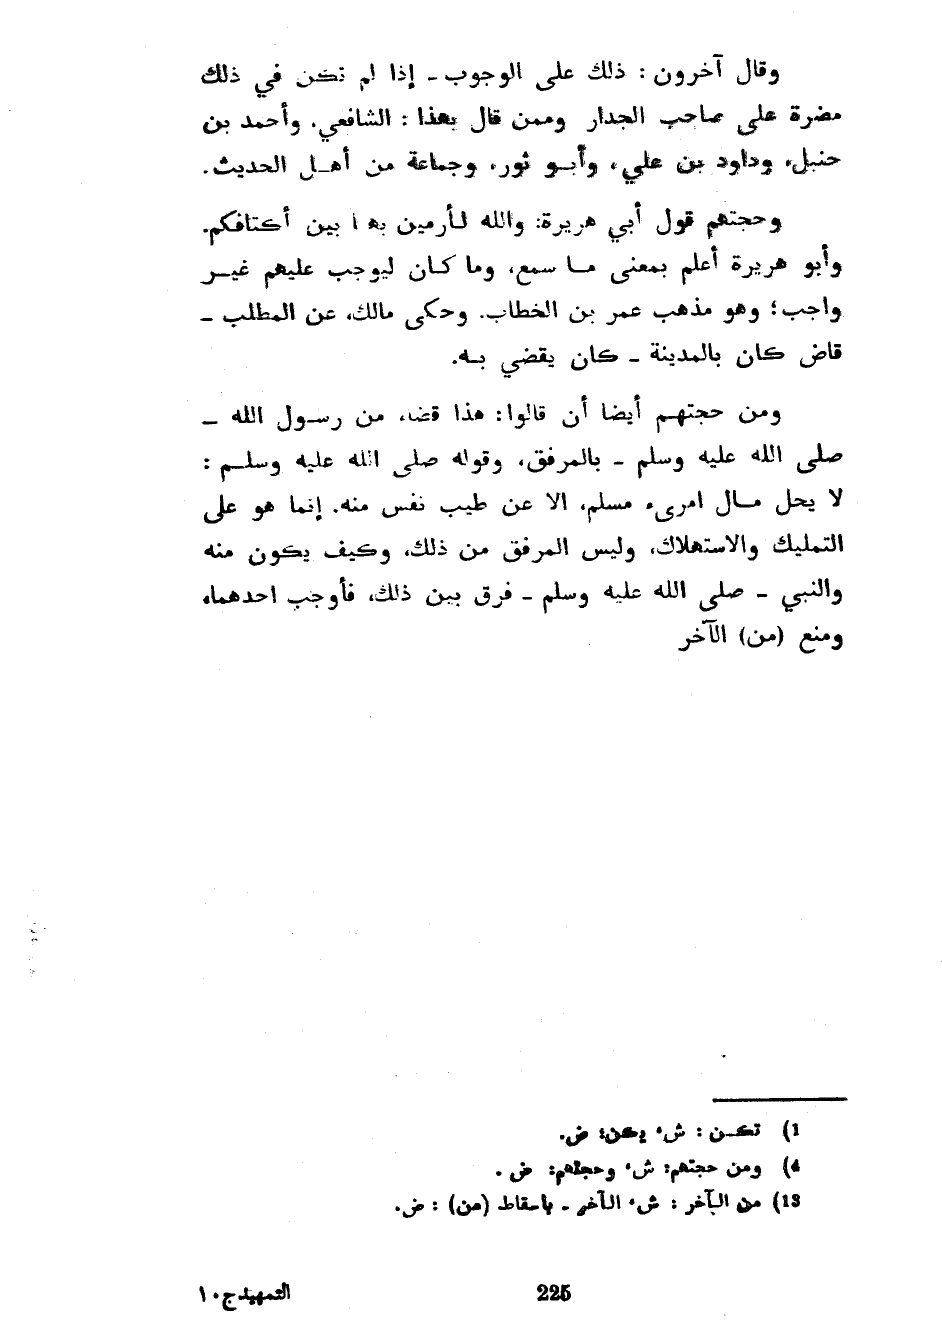 وقال آخرون : ذلك على الوجوب ـ إذا لم تكن في ذلك
مضرة على صاحب الجدار وممن قال بهذا : الشافعي. وأحمد بن
حنبل، وداود بن علي، وأبـو ثور، وجماعة من أهـل الحديث.
وحجتهم قول أبي هريرة: والله لأرمين بها بين أكتافكم.
وأبو هريرة أعلم بمعنى مـا سمع، وما كـان ليوجب عليهم غيـر
واجب؛ وهو مذهب عمر بن الخطاب. وحكى مالك، عن المطلب ـ
قاض كان بالمدينة ـ كان يقضي بـه.
ومن حجتهـم أيضا أن قالوا: هذا قضاء من رسـول الله ـ
صلى الله عليه وسلم ـ بالمرفق، وقوله صلى الله عليه وسلـم :
لا يحل مـال امرىء مسلم، الا عن طيب نفس منه. إنما هو على
التمليك والاستهلاك، وليس المرفق من ذلك، وكيف يكون منه
والنبي ـ صلى الله عليه وسلم ـ فرق بين ذلك، فأوجب احدهما،
ومنع (من) الآخر
1) تكـن : ش، يكن: ض.
4) ومن حجتهم: ش، وحجتهم: ض .
13) من الآخر : ش، الآخر ـ باسقاط (من) : ض.
225
التمهيد ج ١٠